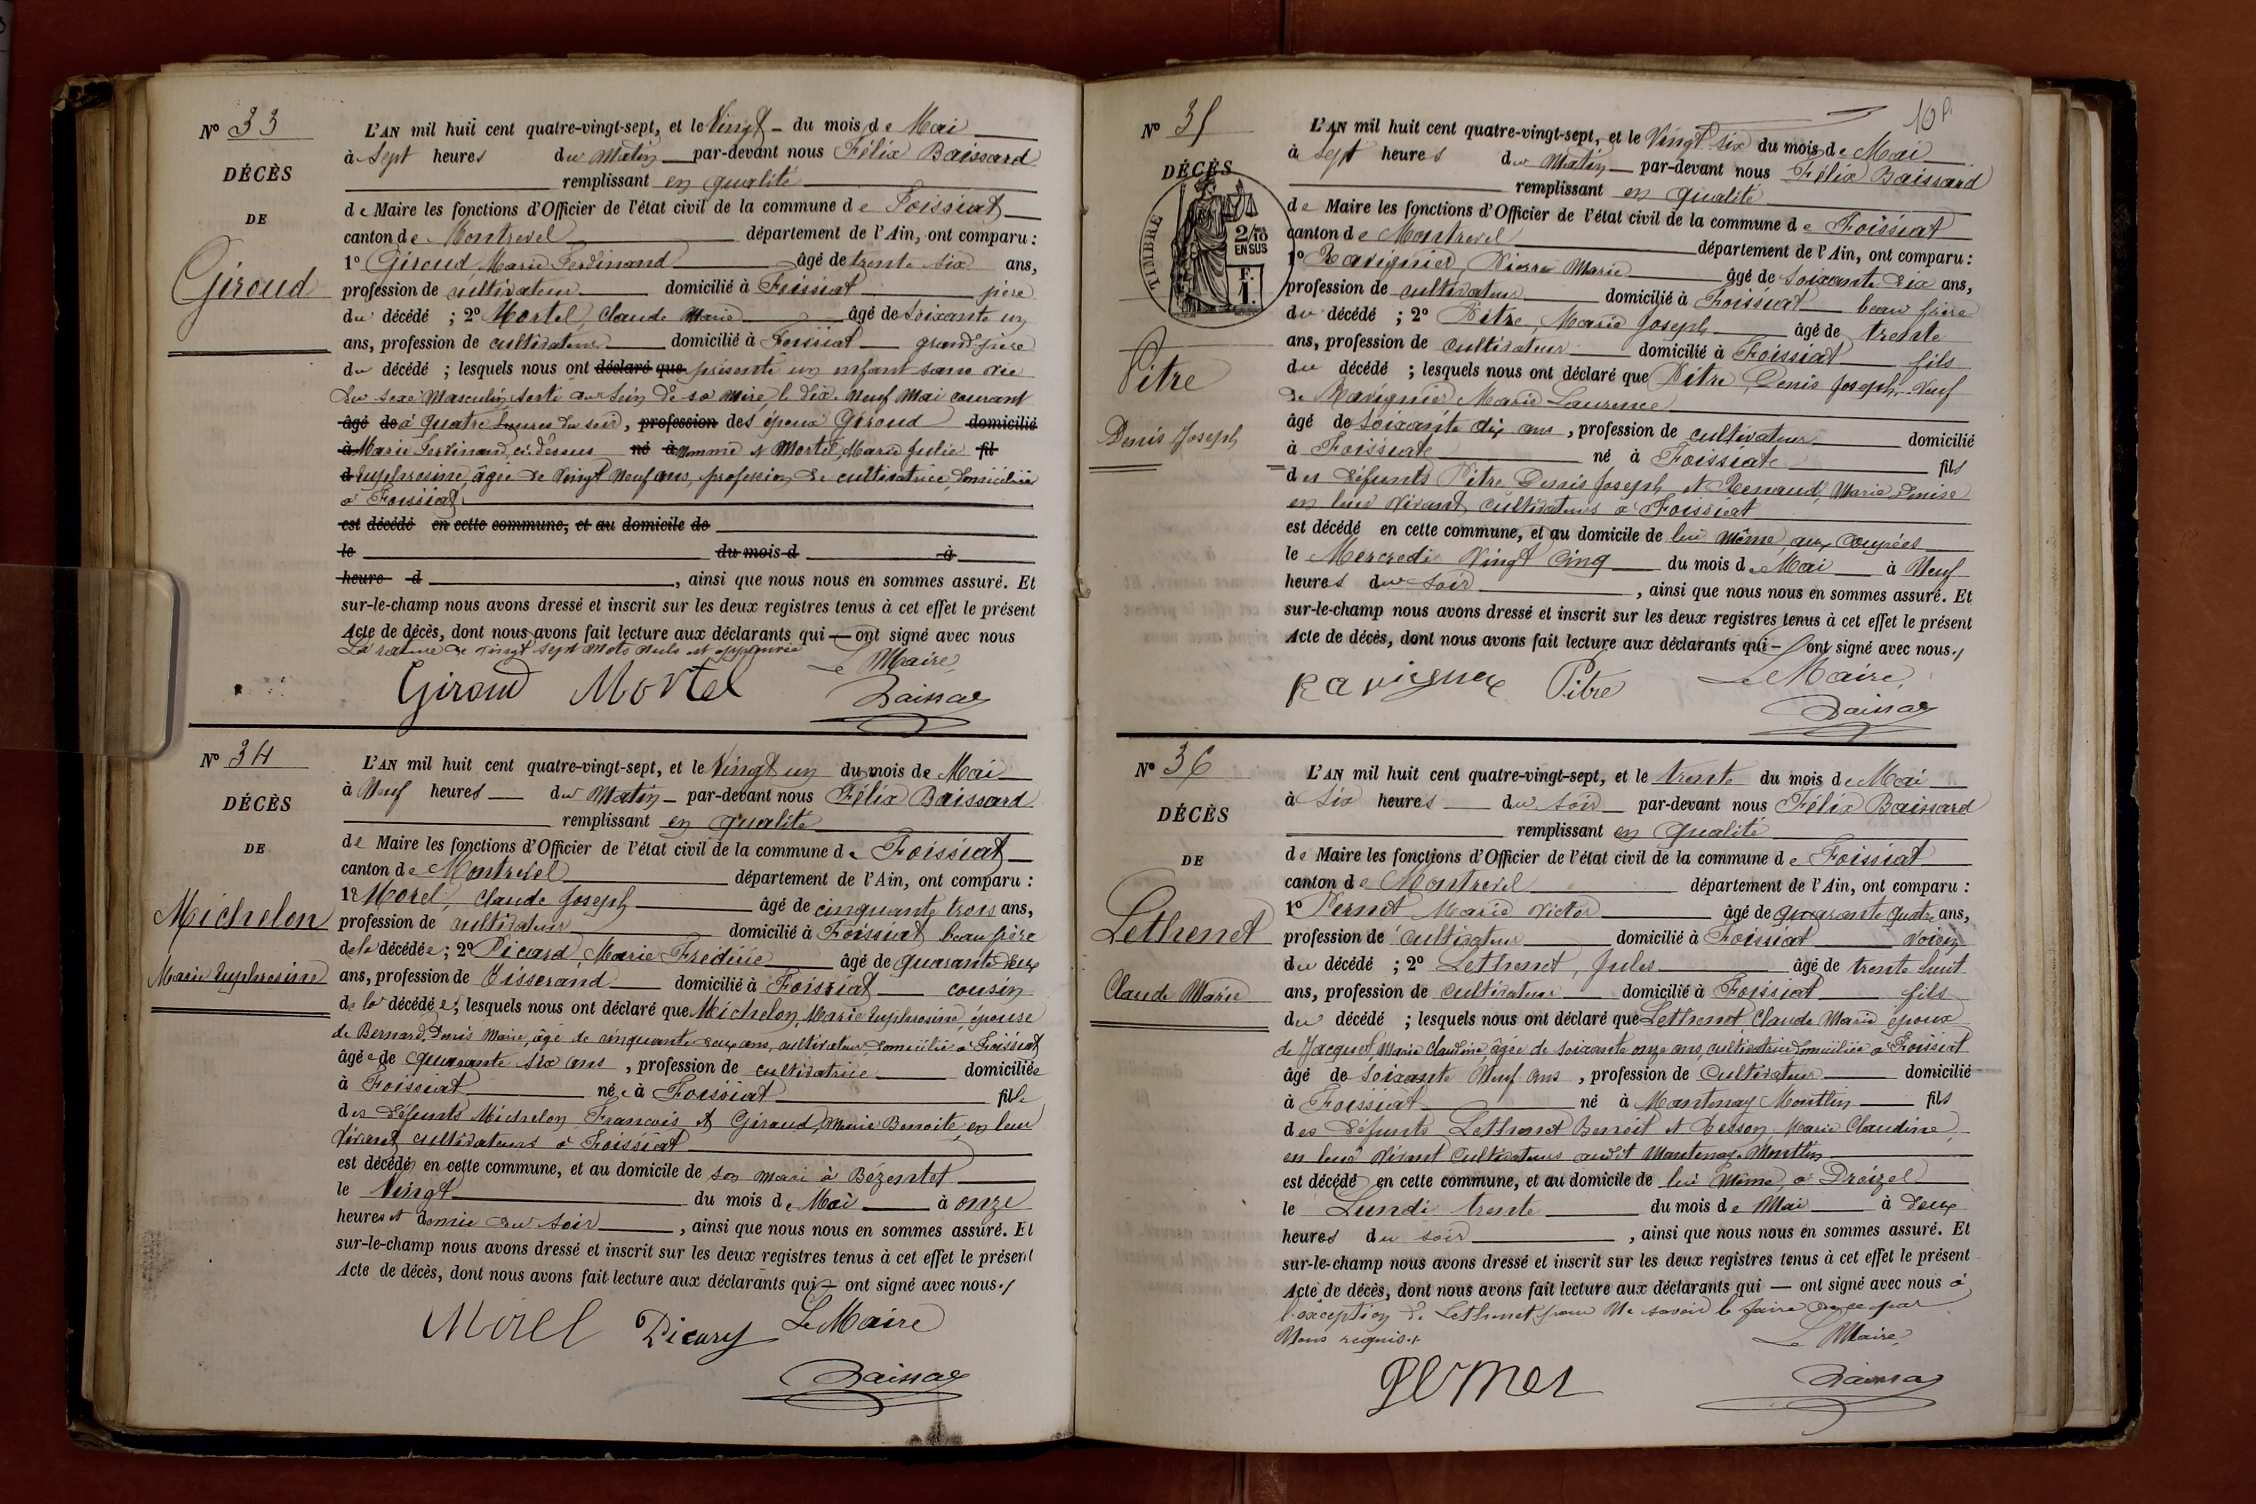 Nº 33
DÉCÈS
DE
Giroud
L'AN mil huit cent quatre-vingt-sept, et le Vingt du mois de Mai
à Sept heures du Matin par-devant nous Félix Baissard
remplissant en qualité
de Maire les fonctions d'Officier de l'état civil de la commune de Foissiat
canton de Montrevel département de l'Ain, ont comparu :
1º Giroud, Marie Ferdinand âgé de trente six ans,
profession de cultivateur domicilié à Foissiat père
du décédé ; 2º Mortel, Claude Marie âgé de soixante un
ans, profession de cultivateur domicilié à Foissiat grand'père
du décédé ; lesquels nous ont déclaré que présenté un enfant sans vie
du sexe Masculin, sorti du sein de sa mère, le dix-neuf Mai courant
âgé de à quatre heures du soir, profession des époux Giroud domicilié
à Marie Ferdinand, ci-dessus né à nommé et Mortel, Marie Julie fil
d Euphrosine, âgée de vingt neuf ans, profession de cultivatrice, domiciliée
à Foissiat
est décédé en cette commune, et au domicile de
le du mois d à
heure d , ainsi que nous nous en sommes assuré. Et
sur-le-champ nous avons dressé et inscrit sur les deux registres tenus à cet effet le présent
Acte de décès, dont nous avons fait lecture aux déclarants qui ont signé avec nous
La rature de vingt sept mots nuls est approuvée
Le Maire
Giroud Mortel Baissard
Nº 34
DÉCÈS
DE
Michelon
Marie Euphrosine
L'AN mil huit cent quatre-vingt-sept, et le Vingt un du mois de Mai
à Neuf heures du Matin par-devant nous Félix Baissard
remplissant en qualité
de Maire les fonctions d'Officier de l'état civil de la commune de Foissiat
canton de Montrevel département de l'Ain, ont comparu :
1º Morel, Claude Joseph âgé de cinquante trois ans,
profession de cultivateur domicilié à Foissiat beau frère
de la décédée ; 2º Picard, Marie Frédéric âgé de quarante deux
ans, profession de Tisserand domicilié à Foissiat cousin
de la décédée ; lesquels nous ont déclaré que Michelon, Marie Euphrosine, épouse
de Bernard, Denis Marie, âgé de cinquante deux ans, cultivateur, domicilié à Foissiat
âgée de quarante six ans , profession de cultivatrice domiciliée
à Foissiat née à Foissiat fille
des défunts Michelon François et Giraud, Marie Benoite, en leur
vivant, cultivateurs à Foissiat
est décédée en cette commune, et au domicile de son mari à Bézentet
le Vingt du mois de Mai à onze
heures et demie du soir , ainsi que nous nous en sommes assuré. Et
sur-le-champ nous avons dressé et inscrit sur les deux registres tenus à cet effet le présent
Acte de décès, dont nous avons fait lecture aux déclarants qui ont signé avec nous.
Morel Picard Le Maire
Baissard
Nº 35
DÉCÈS
TIMBRE
2/10
EN SUS
F.
1.
Pitre
Denis Joseph
L'AN mil huit cent quatre-vingt-sept, et le Vingt six du mois de Mai
à Sept heures du Matin par-devant nous Félix Baissard
remplissant en qualité
de Maire les fonctions d'Officier de l'état civil de la commune de Foissiat
canton de Montrevel département de l'Ain, ont comparu :
1º Ravignier, Pierre Marie âgé de soixante dix ans,
profession de cultivateur domicilié à Foissiat beau frère
du décédé ; 2º Pitre, Marie Joseph âgé de trente
ans, profession de cultivateur domicilié à Foissiat fils
du décédé ; lesquels nous ont déclaré que Pitre, Denis Joseph, Veuf
de Ravignier Marie Laurence
âgé de soixante dix ans , profession de cultivateur domicilié
à Foissiat né à Foissiat fils
des défunts Pitre Denis Joseph et Renaud, Marie Denise
en leur vivant, cultivateurs à Foissiat
est décédé en cette commune, et au domicile de lui même, aux Coupées
le Mercredi Vingt cinq du mois de Mai à Neuf
heures du soir , ainsi que nous nous en sommes assuré. Et
sur-le-champ nous avons dressé et inscrit sur les deux registres tenus à cet effet le présent
Acte de décès, dont nous avons fait lecture aux déclarants qui ont signé avec nous.
Le Maire,
Ravignier Pitre
Baissard
Nº 36
DÉCÈS
DE
Lethenet
Claude Marie
L'AN mil huit cent quatre-vingt-sept, et le trente du mois de Mai
à Six heures du soir par-devant nous Félix Baissard
remplissant en qualité
de Maire les fonctions d'Officier de l'état civil de la commune de Foissiat
canton de Montrevel département de l'Ain, ont comparu :
1º Pernet Marie Victor âgé de quarante quatre ans,
profession de cultivateur domicilié à Foissiat voisin
du décédé ; 2º Lethenet, Jules âgé de trente huit
ans, profession de cultivateur domicilié à Foissiat fils
du décédé ; lesquels nous ont déclaré que Lethenet Claude Marie époux
de Jacquet, Marie Claudine, âgée de soixante onze ans, cultivatrice, domiciliée à Foissiat
âgé de soixante Neuf ans , profession de Cultivateur domicilié
à Foissiat né à Mantenay Montlin fils
des défunts Lethenet Benoit et Tesson Marie Claudine,
en leur vivant Cultivateurs audit Mantenay-Montlin
est décédé en cette commune, et au domicile de lui même à Droizel
le Lundi trente du mois de Mai à Deux
heures du soir , ainsi que nous nous en sommes assuré. Et
sur-le-champ nous avons dressé et inscrit sur les deux registres tenus à cet effet le présent
Acte de décès, dont nous avons fait lecture aux déclarants qui ont signé avec nous à
l'exception de Lethenet pour ne savoir le faire de ce par
Nous requis.
Le Maire,
Pernet Baissard